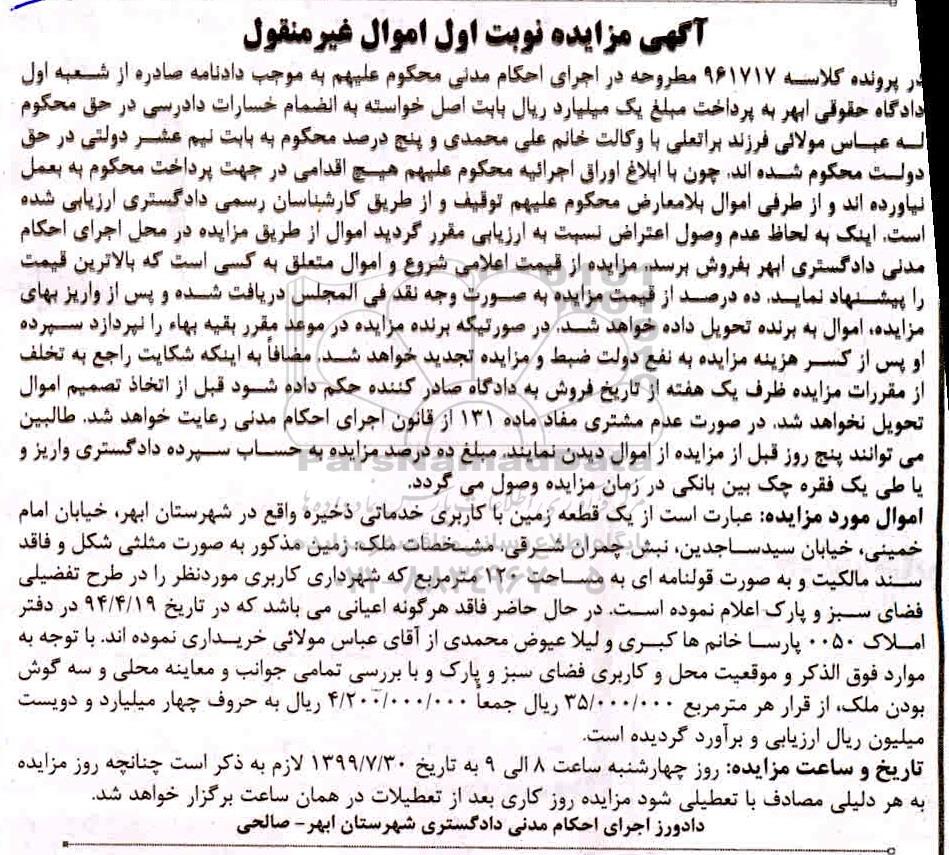 آگهی مزایده نوبت اول اموال غیرمنقول
در پرونده کلاسه ۹۶۱۷۱۷ مطروحه در اجرای احکام مدنی محکوم علیهم به موجب دادنامه صادره از شعبه اول
دادگاه حقوقی ابهر به پرداخت مبلغ یک میلیارد ریال بابت اصل خواسته به انضمام خسارات دادرسی در حق محکوم
له عباس مولائی فرزند براتعلی با وکالت خانم علی محمدی و پنج درصد محکوم به بابت نیم عشر دولتی در حق
دولت محکوم شده اند. چون با ابلاغ اوراق اجرائیه محکوم علیهم هیچ اقدامی در جهت پرداخت محکوم به بعمل
نیاورده اند و از طرفی اموال بلامعارض محکوم علیهم توقیف و از طریق کارشناسان رسمی دادگستری ارزیابی شده
است. اینک به لحاظ عدم وصول اعتراض نسبت به ارزیابی مقرر گردید اموال از طریق مزایده در محل اجرای احکام
مدنی دادگستری ابهر بفروش برسد. مزایده از قیمت اعلامی شروع و اموال متعلق به کسی است که بالاترین قیمت
را پیشنهاد نماید. ده درصد از قیمت مزایده به صورت وجه نقد فی المجلس دریافت شده و پس از واریز بهای
مزایده، اموال به برنده تحویل داده خواهد شد. در صورتیکه برنده مزایده در موعد مقرر بقیه بهاء را نپردازد سپرده
او پس از کسر هزینه مزایده به نفع دولت ضبط و مزایده تجدید خواهد شد. مضافاً به اینکه شکایت راجع به تخلف
از مقررات مزایده ظرف یک هفته از تاریخ فروش به دادگاه صادر کننده حکم داده شود قبل از اتخاذ تصمیم اموال
تحویل نخواهد شد. در صورت عدم مشتری مفاد ماده ۱۳۱ از قانون اجرای احکام مدنی رعایت خواهد شد. طالبین
می توانند پنج روز قبل از مزایده از اموال دیدن نمایند. مبلغ ده درصد مزایده به حساب سپرده دادگستری واریز و
یا طی یک فقره چک بین بانکی در زمان مزایده وصول می گردد.
اموال مورد مزایده: عبارت است از یک قطعه زمین با کاربری خدماتی ذخیره واقع در شهرستان ابهر، خیابان امام
خمینی، خیابان سیدساجدین، نبش چمران شرقی. مشخصات ملک: زمین مذکور به صورت مثلثی شکل و فاقد
سند مالکیت و به صورت قولنامه ای به مساحت ۱۲۰ مترمربع که شهرداری کاربری موردنظر را در طرح تفضیلی
فضای سبز و پارک اعلام نموده است. در حال حاضر فاقد هرگونه اعیانی می باشد که در تاریخ ۹۴/۴/۱۹ در دفتر
املاک ۰۰۵۰ پارسا خانم ها کبری و لیلا عیوض محمدی از آقای عباس مولائی خریداری نموده اند. با توجه به
موارد فوق الذکر و موقعیت محل و کاربری فضای سبز و پارک و با بررسی تمامی جوانب و معاینه محلی و سه گوش
بودن ملک، از قرار هر مترمربع ۳۵/۰۰۰/۰۰۰ ریال جمعاً ۴/۲۰۰/۰۰۰/۰۰۰ ریال به حروف چهار میلیارد و دویست
میلیون ریال ارزیابی و برآورد گردیده است.
تاریخ و ساعت مزایده: روز چهارشنبه ساعت ۸ الی ۹ به تاریخ ۱۳۹۹/۷/۳۰ لازم به ذکر است چنانچه روز مزایده
به هر دلیلی مصادف با تعطیلی شود مزایده روز کاری بعد از تعطیلات در همان ساعت برگزار خواهد شد.
دادورز اجرای احکام مدنی دادگستری شهرستان ابهر- صالحی
ParsNamadData